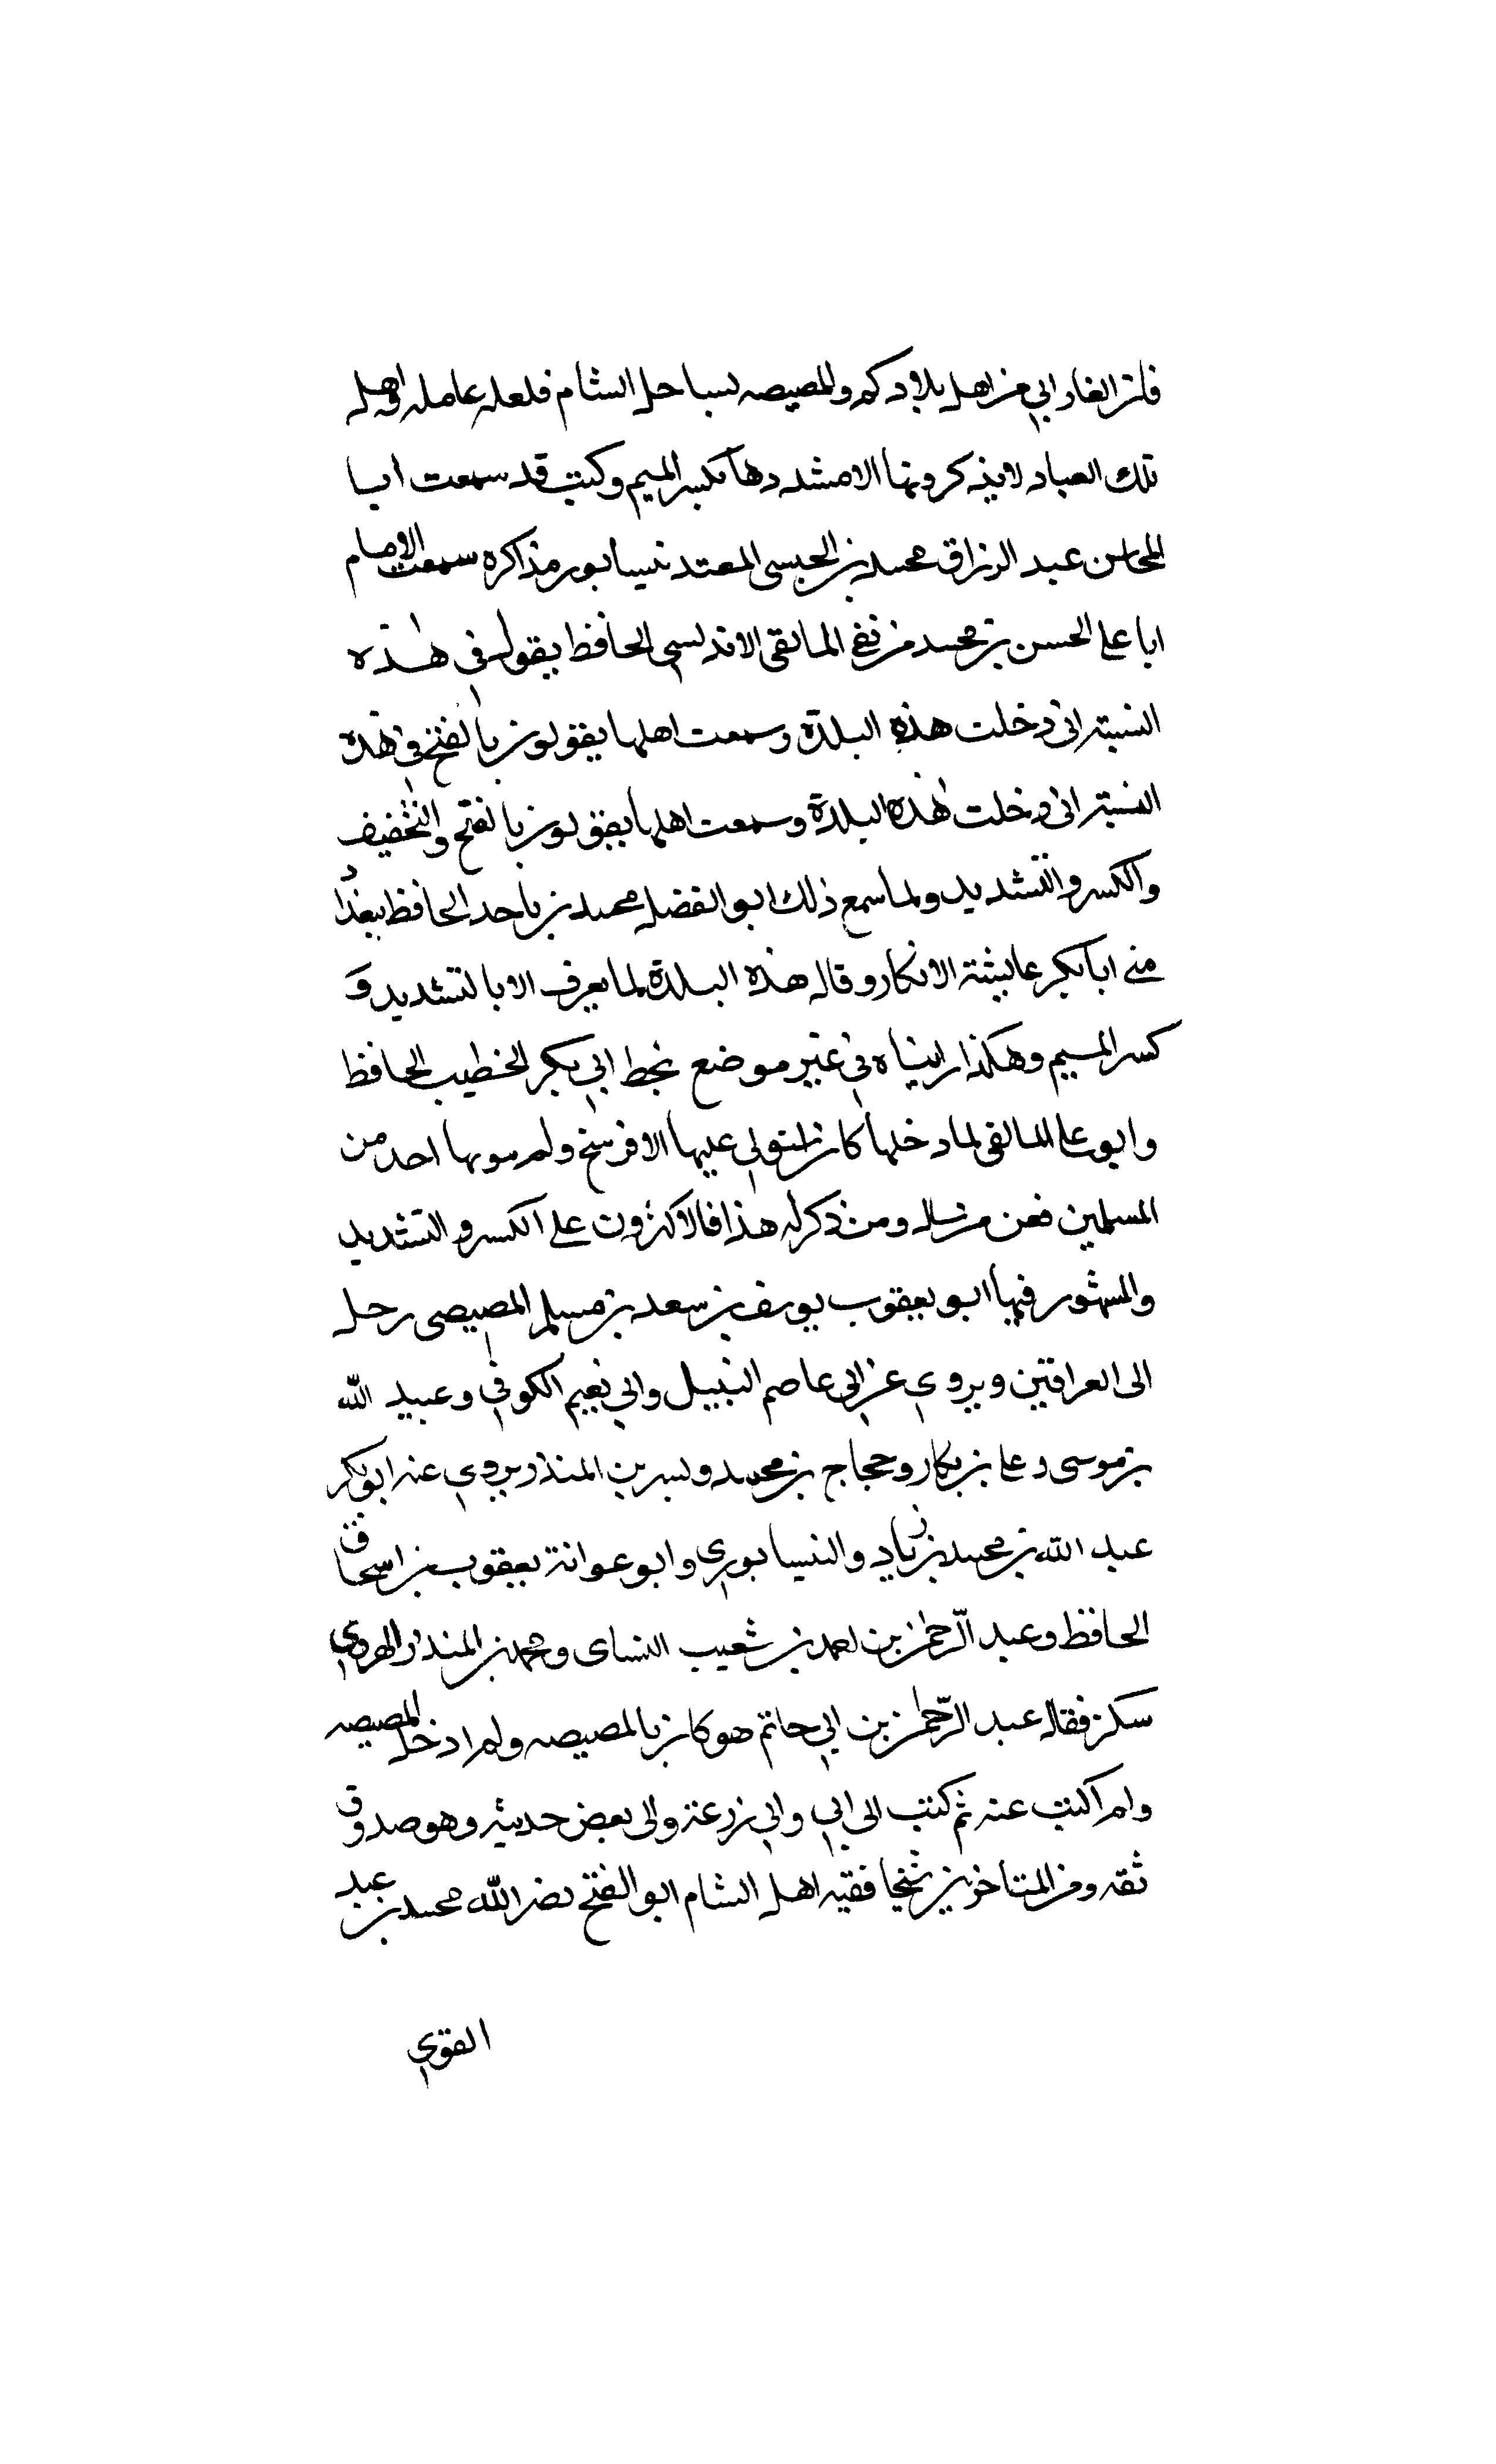 فلن الفارابي من اهل بلادكم والمصيصه بساحل الشام فلعله عامله اهل
تلك العباد لا يذكرونها الا مشددها بكسر الميم وكنت قد سمعت ابا
المحاسن عبد الرزاق محمد بن الحبسي المعتد نيسابور مذاكره سمعت الامام
ابا علي الحسن بن محمد من نفع المالقي الاندلسي الحافظ يقول في هذه
النسبة اني دخلت هذه البلدة وسمعت اهلها يقولون بالفتح في هذه
النسبة اني دخلت هذه البلدة وسمعت اهلها يقولون بالفتح والتخفيف
والكسر والتشديد ولما سمع ذلك ابو الفضل محمد بن ناحد الحافظ ببغداد
مني ابا بكر عايشة الانكار وقال هذه البلدة لما يعرف الا بالتشديد و
كسر الميم وهكذا رايناه في غير موضع بخط ابي بكر الخطيب الحافظ
وابو علي المالقي لما دخلها كان استولي عليها الافرنج ولم بها احد من
المسلمين فمن ومن ذكر له هذا فالاكثرون علي الكسر والتشديد
والمشهور فيها ابو يعقوب يوسف بن سعد بن مسلم المصيصي رحل
الى العراقين ويروي عن ابي عاصم النبيل وابي نعيم الكوفي وعبيد الله
بن موسى وعلي بن بكار وحجاج بن محمد وبسر بن المنذر يروي عنه ابو بكر
عبد الله بن محمد بن زياد والنيسابوري وابو عوانة يعقوب بن اسحاق
الحافظ وعبد الرحمن بن احمد بن شعيب النساى ومحمد بن المنذر الهروي
سكن فقال عبد الرحمن بن ابي حاتم هو كان بالمصيصه ولم ادخل المصيصه
ولم اكتب عنه ثم كتب الى ابي وابي زرعة والى بعض حديثه وهو صدوق
ثقه ومن المتاخرين شيخنا فقيه اهل الشام ابو الفتح نصر الله محمد بن عبد
القوي